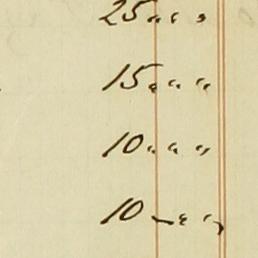 25 " " "
15 " " "
10 " " "
10 " "